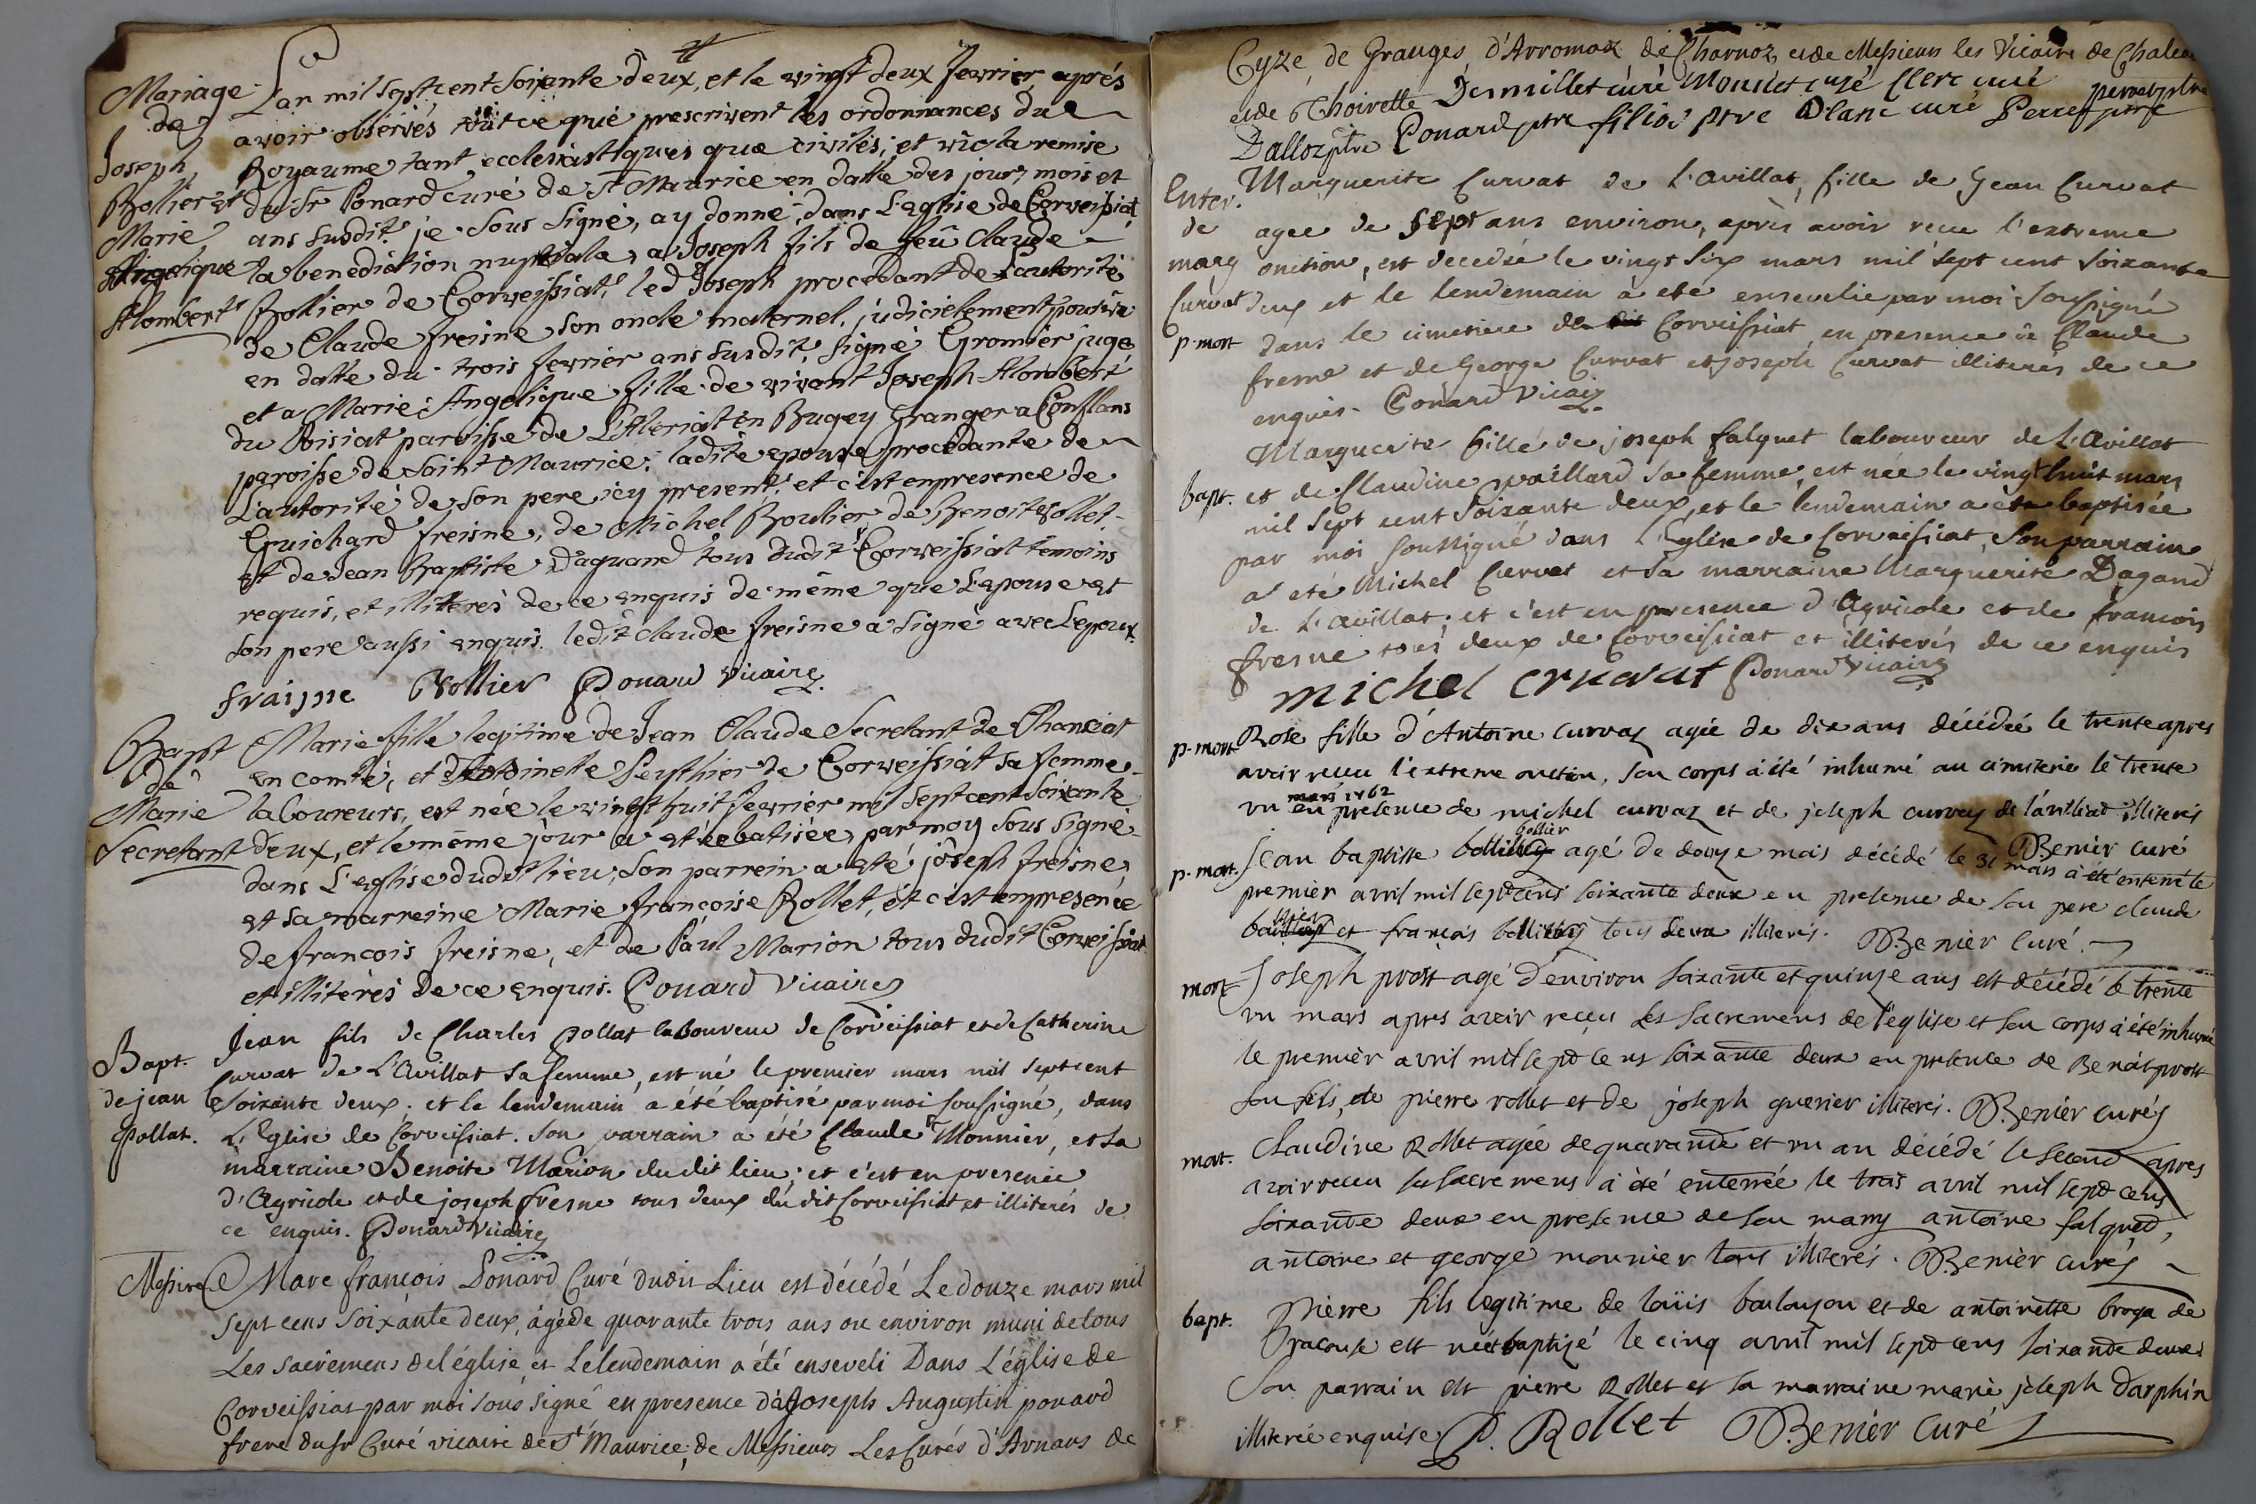 Mariage
de
Joseph
Rollier et
Marie
Angelique
Alombert
L'an mil sept cent soixante deux, et le vingt deux fevrier, aprés
avoir obsérvés tout ce que prescrivent les ordonnances du
Royaume tant ecclesiastiques que civiles; et vû la remise
du Sr Ponard curé de St Maurice en datte des jour, mois et
ans susdit, je sous signé, ay donné, dans L'eglise de Corveissiat
la benediction nuptiale, a Joseph fils de feû Claude
Rollier de Corveissiat, led Joseph procedant de L'autorité
de Claude freisne son oncle maternel, judiciélement pourvû
en datte du trois fevrier ans susdit, signé Gromier juge
et a Marie Angelique fille de vivant Joseph Alombert
du Poisiat paroisse de L'Aleriat en Bugey Granger a Conflans
paroisse de Saint Maurice; ladite epouse procedante de
L'autorité de son pere icy present, et c'est en presence de
Guichard freisne, de Michel Roulier, de Benoit Rollet
et de Jean Baptiste Daguand tous dudit Corveissiat temoins
requis, et illiterés de ce enquis de même que L'epouse et
son pere aussi enquis. ledit claude freisne a signé avec Lepoux.
fraisne Rollier Ponard vicaire
Bapt
de
Marie
Secretant
Marie fille legitime de Jean Claude Secretant de Chanciat
en comté, et d'Antoinete Perthier de Corveissiat sa femme
laboureurs, est née le vingt huit fevrier mil sept cent soixante
deux, et le même jour a etée batisée, par moy sous signé
dans L'eglise dudit lieu, son parrein a eté joseph freisne
et sa marreine Marie françoise Rollet, et c'est en presence
de françois freisne, et de Paul Marion tous dudit Corveissiat
et illiterés de ce enquis. Ponard Vicaire
Bapt.
de jean
Pollat.
Jean fils de Charles Pollat laboureur de Corveissiat et de Catherine
Curvat de L'Avillat sa femme, est né le premier mars mil sept cent
soixante deux; et le lendemain a été baptisé par moi soussigné, dans
L'Eglise de Corveissiat. son parrain a été Claude Monnier, et sa
marraine Benoite Marion du dit lieu; et c'est en presence
d'Agricole et de joseph fresne tous deux du dit Corveissiat et illiterés de
ce enquis. Ponard Vicaire
Messire Marc françois Ponard Curé dudit Lieu est décédé Le douze mars mil
sept cens soixante deux, âgé de quarante trois ans ou environ muni de tous
Les sacremens de l'église et Le lendemain a été enseveli Dans L'église de
Corveissiat par moi sous signé en presence de Joseph Augustin ponard
frere du sr Curé vicaire de St Maurice, de Messieurs Les Curés d'Arnans de
Cyze, de Granges, d'Arromas, de Charnoz, et de Messieurs les Vicaire de Chalea
et de Thoirette Demillet curé Moudet curé Clerc curé
Dalloz ptre Ponard ptre filiod ptre Blanc curé Perret ptre
Enter.
de
marg
Curvat
p. mort
Marguerite Curvat de L'Avillat, fille de Jean Curvat
agée de sept ans environ, après avoir reçue l'extreme
onction, est decedée le vingt six mars mil sept cent soixante
deux et le lendemain a eté ensevelie par moi soussigné
dans le cimetiere de Corveissiat, en presence de Claude
fresne et de George Curvat et joseph Curvat illiterés de ce
enquis. Ponard Vicaire
bapt.
Marguerite fille de joseph falquet laboureur de L'Avillat
et de Claudine vaillard sa femme, est née le vingt huit mars
mil sept cent soixante deux, et le lendemain a eté baptisée
par moi soussigné dans L'Eglise de Corveissiat, son parrain
a eté Michel Curvat et sa marraine Marguerite Dagand
de L'Avillat; et c'est en presence d'Agricole et de francois
fresne tous deux de Corveissiat et illiterés de ce enquis
michel cruvat Ponard Vicaire
p. mort
Rose fille d'Antoine curvaz agée de dix ans décédée le trente apres
avoir receu l'extreme onction, son corps a été inhumé au cimetiere le trente
mars 1762
un en presence de michel curvaz et de joseph curvaz de l'avilliat illiterés
Benier curé
p. mort.
Jean baptiste rollier agé de douze mois décédé le 31 mars a été enterré le
premier avril mil sept cens soixante deux en presence de son pere claude
rollier et françois tous deux illiterés. Benier curé
mort
Joseph prost agé d'environ soixante et quinze ans est décédé le trente
un mars apres avoir reçeu les sacremens de l'eglise et son corps a été inhumé
le premier avril mil sept cens soixante deux en presence de Benoit prost
son fils, de pierre rollet et de joseph guerier illiterés. Benier curé
mort.
Claudine Rollet agée de quarante et un an décédé le second apres
avoir receu les sacremens a été enterrée le trois avril mil sept cens
soixante deux en presence de son mary antoine falquet,
antoine et george mounier tous illiterés. Benier curé
bapt.
Pierre fils legitime de loüis boulayon et de antoinette broya de
Racouse est né et baptizé le cinq avril mil sept cens soixante deux
son parrain est pierre Rollet et sa marraine marie joseph darphin
illiterée enquise P. Rollet Benier Curé